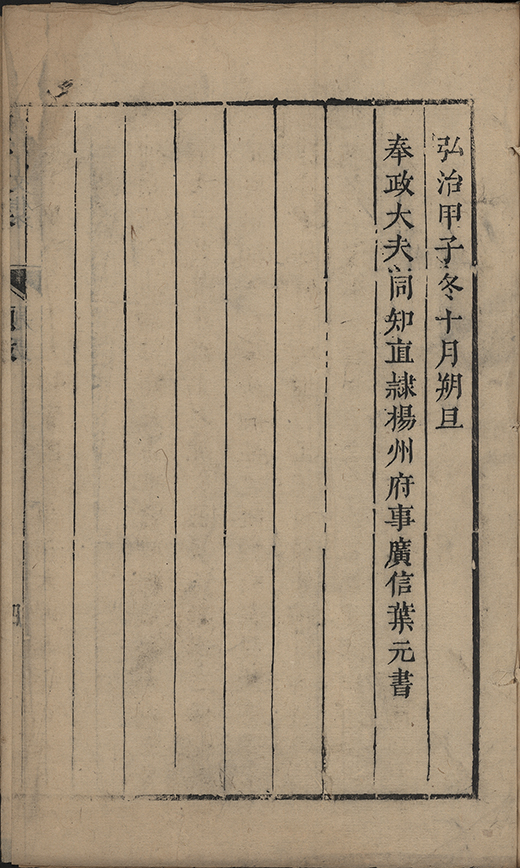 弘治甲子冬十月朔旦
奉政大夫同知直隷楊州府事廣信葉元書